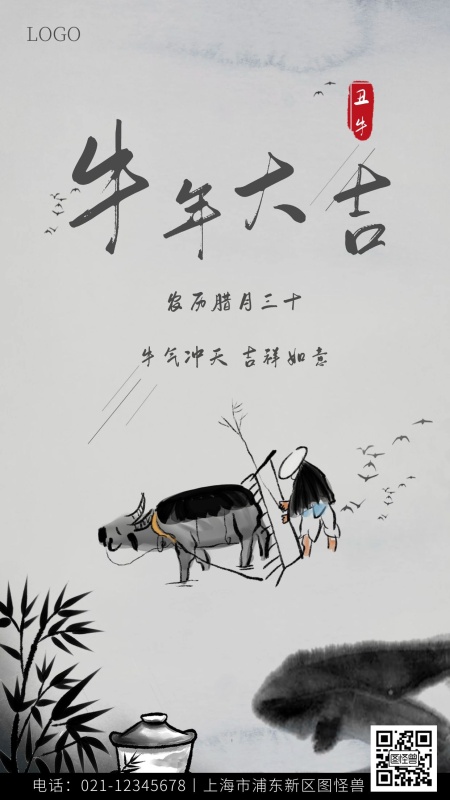 LOGO
丑牛
牛年大吉
农历腊月三十
牛气冲天 吉祥如意
电话：021-12345678丨上海市浦东新区图怪兽
图怪兽